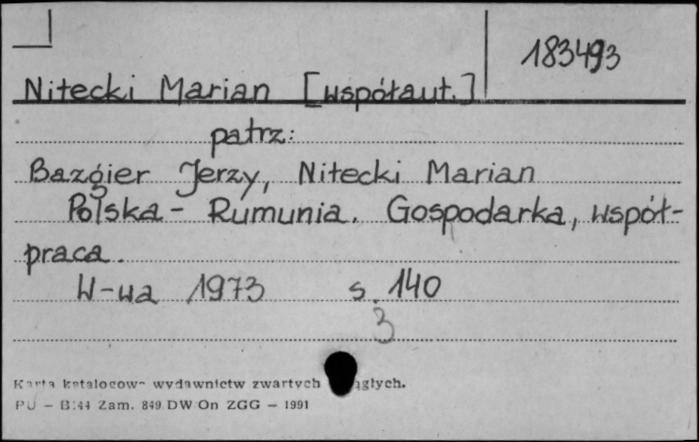 183493
Nitecki Marian [współaut.]
patrz:
Bazgier Jerzy, Nitecki Marian
Polska - Rumunia. Gospodarka, współ-
praca.
W-wa 1973 s. 140
3
Karta katalogow- wydawnictw zwartych
PU - B.44 Zam. 849 DW On ZGG - 1991